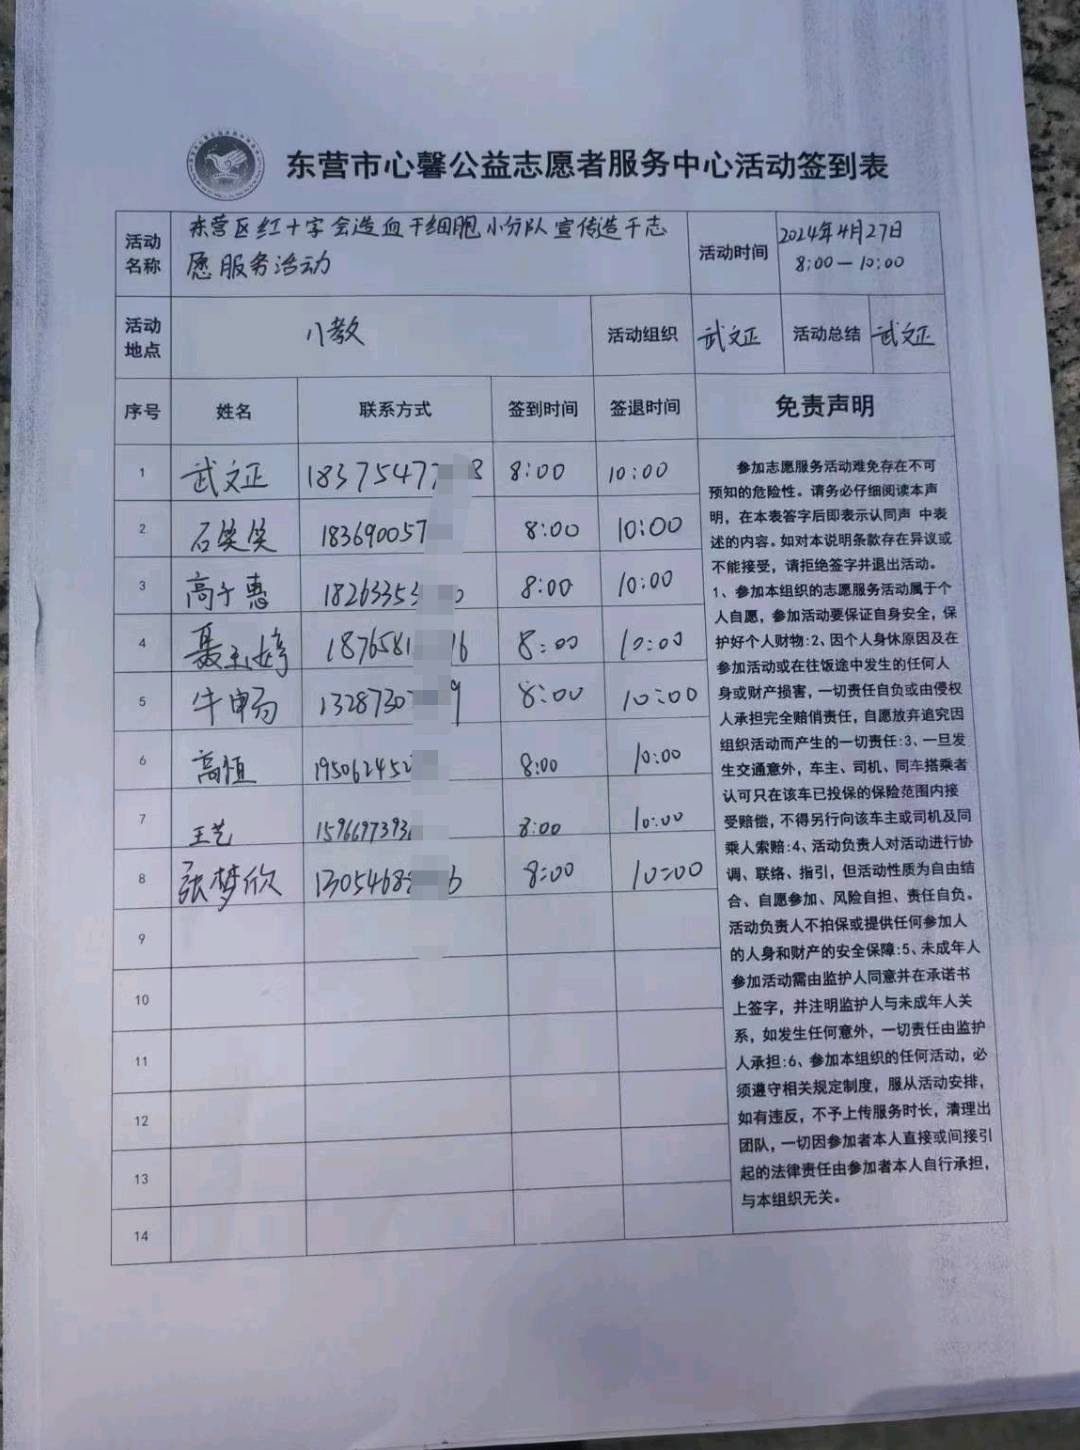 东营市心馨公益志愿者服务中心活动签到表
活动名称 东营区红十字会造血干细胞小分队宣传造干志 活动时间 2024年4月27日
愿服务活动 8:00—10:00
活动地点 八教 活动组织 武文正 活动总结 武文正
序号 姓名 联系方式 签到时间 签退时间 免责声明
1 武文正 18375477 8 8:00 10:00
2 石笑笑 183690057 8:00 10:00
3 高于惠 18263353 0 8:00 10:00
4 聂玉婷 1876581 16 8:00 10:00
5 牛申易 1328730 9 8:00 10:00
6 高恒 195062452 8:00 10:00
7 王艺 159669739 8:00 10:00
8 张梦欣 1305468 6 8:00 10:00
9
10
11
12
13
14
参加志愿服务活动难免存在不可
预知的危险性。请务必仔细阅读本声
明，在本表答字后即表示认同声 中表
述的内容。如对本说明条款存在异议或
不能接受，请拒绝签字并退出活动。
1、参加本组织的志愿服务活动属于个
人自愿，参加活动要保证自身安全，保
护好个人财物:2、因个人身休原因及在
参加活动或在往饭途中发生的任何人
身或财产损害，一切责任自负或由侵权
人承担完全赔俏责任，自愿放弃追究因
组织活动而产生的一切责任:3、一旦发
生交通意外，车主、司机、同车搭乘者
认可只在该车已投保的保险范围内接
受赔偿，不得另行向该车主或司机及同
乘人索赔:4、活动负责人对活动进行协
调、联络、指引，但活动性质为自由结
合、自愿参加、风险自担、责任自负。
活动负责人不拍保或提供任何参加人
的人身和财产的安全保障:5、未成年人
参加活动需由监护人同意并在承诺书
上签字，并注明监护人与未成年人关
系，如发生任何意外，一切责任由监护
人承担:6、参加本组织的任何活动，必
须遵守相关规定制度，服从活动安排，
如有违反，不予上传服务时长，清理出
团队，一切因参加者本人直接或间接引
起的法律责任由参加者本人自行承担，
与本组织无关。